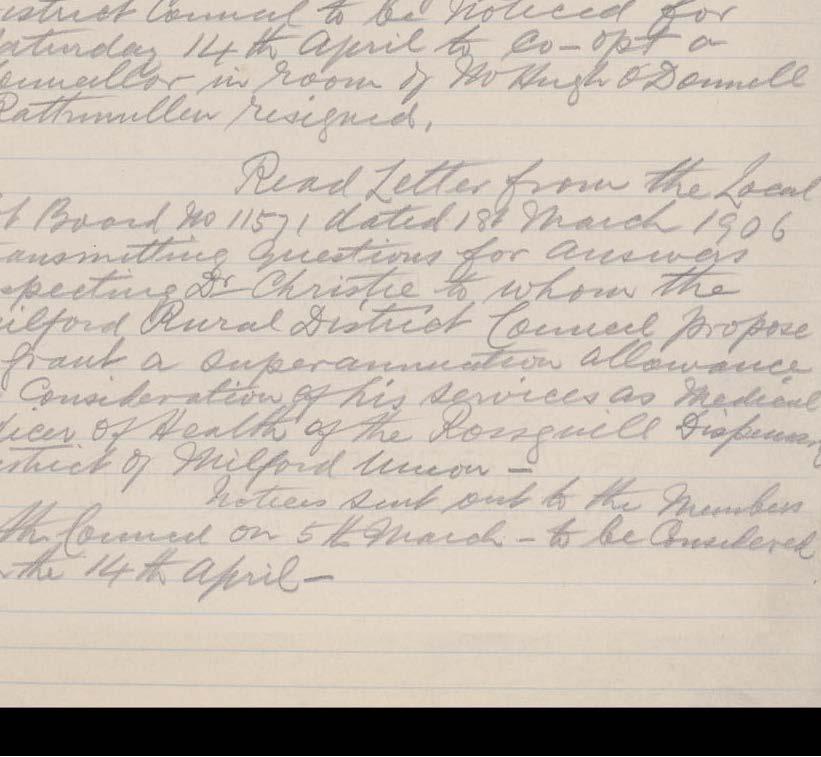 istrict Council to be noticed for
aturday 14th April to Co-opt a
ouncillor in room of Mr Hugh O'Donnell
Rathmullen resigned.
Read Letter from the Local
t Board No 11571 dated 18t March 1906
ansmitting questions for answers
specting Dr Christie to whom the
ilford Rural District Council propose
grant a superannuation allowance
Consideration of his services as Medical
ficer of Health of the Rossguill Dispensary
istrict of Milford Union -
Notices sent out to the Members
th Council on 5th March - to be Considered
the 14th April -